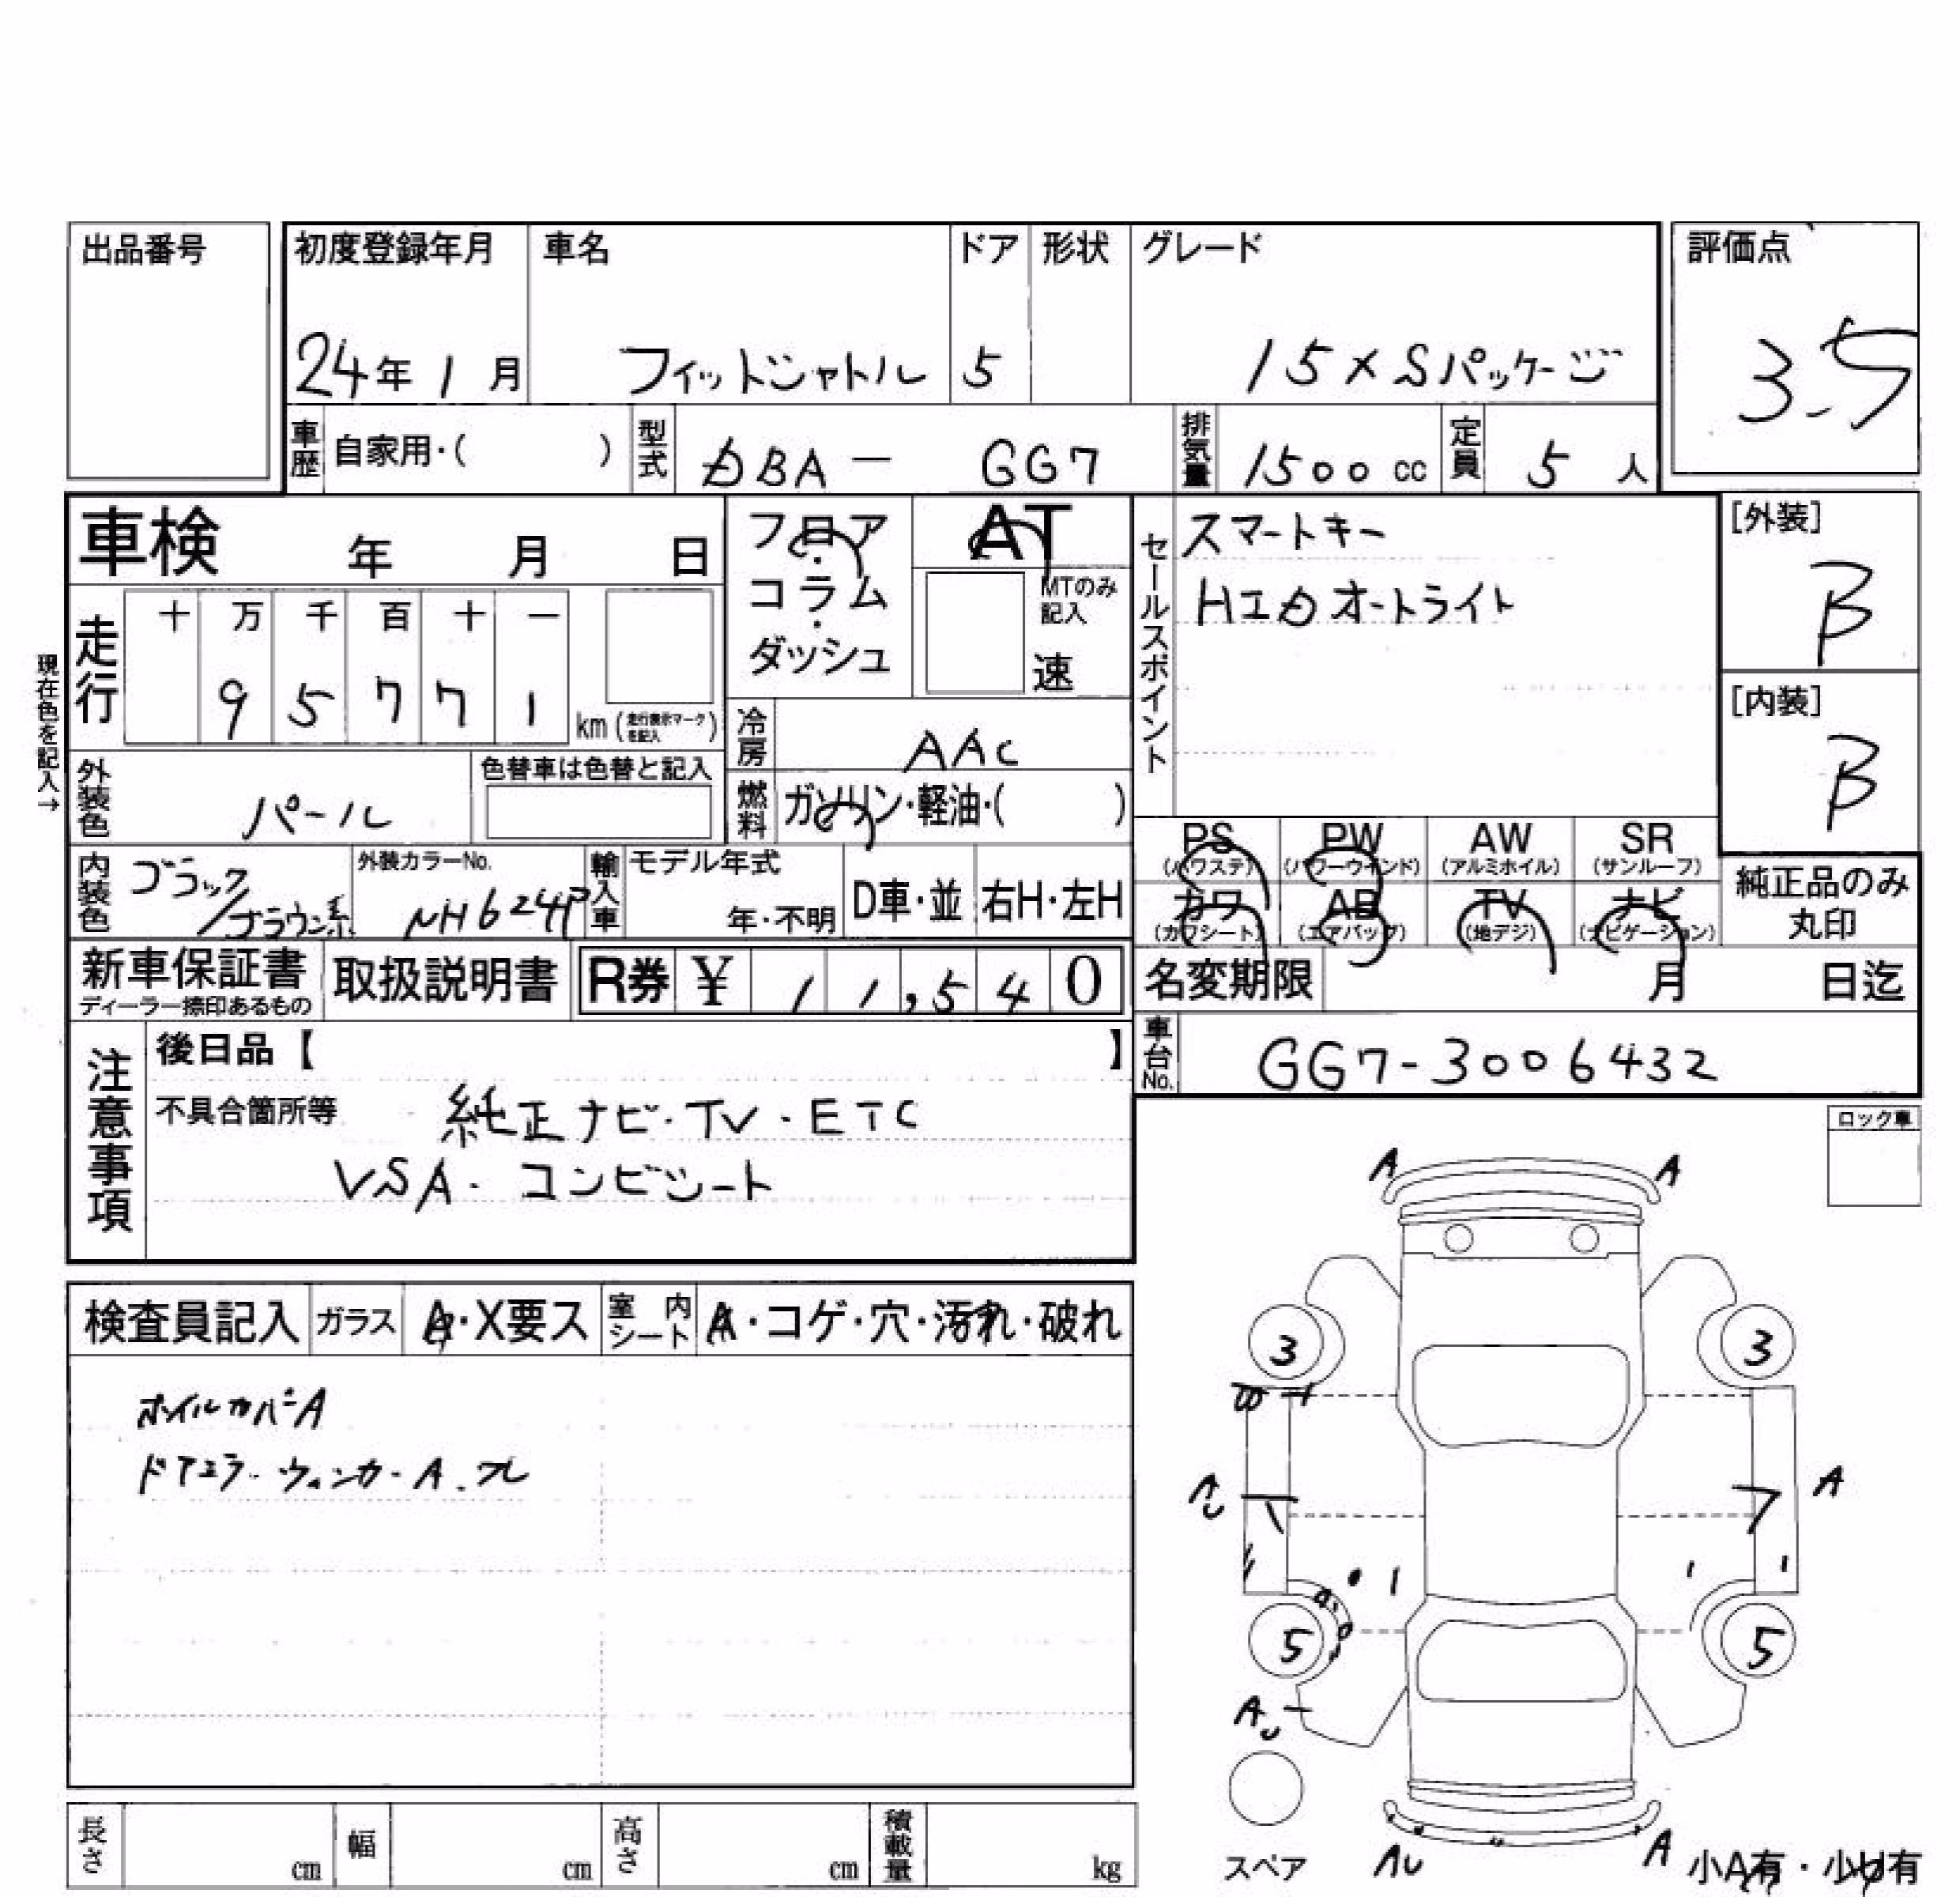 出品番号
初度登録年月 車名 ドア 形状 グレード 評価点
24年1月 フィットシャトル 5 15XSパッケージ 3.5
車歴 自家用・( ) 型式 DBA - GG7 排気量 1500cc 定員 5人
車検 年 月 日
フロア・コラム・ダッシュ
AT
MTのみ記入
速
セールスポイント
スマートキー
HIDオートライト
[外装]
B
[内装]
B
現在色を記入→
走行 十 万 千 百 十 一
9 5 7 7 1 km(走行表示マークを記入)
冷房 AAC
外装色 パール 色替車は色替と記入
燃料 ガソリン・軽油・( )
PS (パワステ) PW (パワーウインド) AW (アルミホイル) SR (サンルーフ)
カワ (カワシート) AB (エアバッグ) TV (地デジ) ナビ (ナビゲーション)
純正品のみ丸印
内装色 ブラック/ブラウン系 外装カラーNo. NH624P 輸入車 モデル年式 年・不明 D車・並 右H・左H
新車保証書 ディーラー捺印あるもの 取扱説明書 R券 ¥ 11,540
名変期限 月 日迄
車台No. GG7-3006432
注意事項
後日品【 】
不具合箇所等 純正ナビ・TV・ETC
VSA・コンビシート
ロック車
検査員記入 ガラス A・X要ス 室内シート A・コゲ・穴・汚れ・破れ
ホイルカバーA
ドアミラーウィンカーA.
A A
3 3
A
5 5
スペア AU A 小A有・小U有
長さ cm 幅 cm 高さ cm 積載量 kg